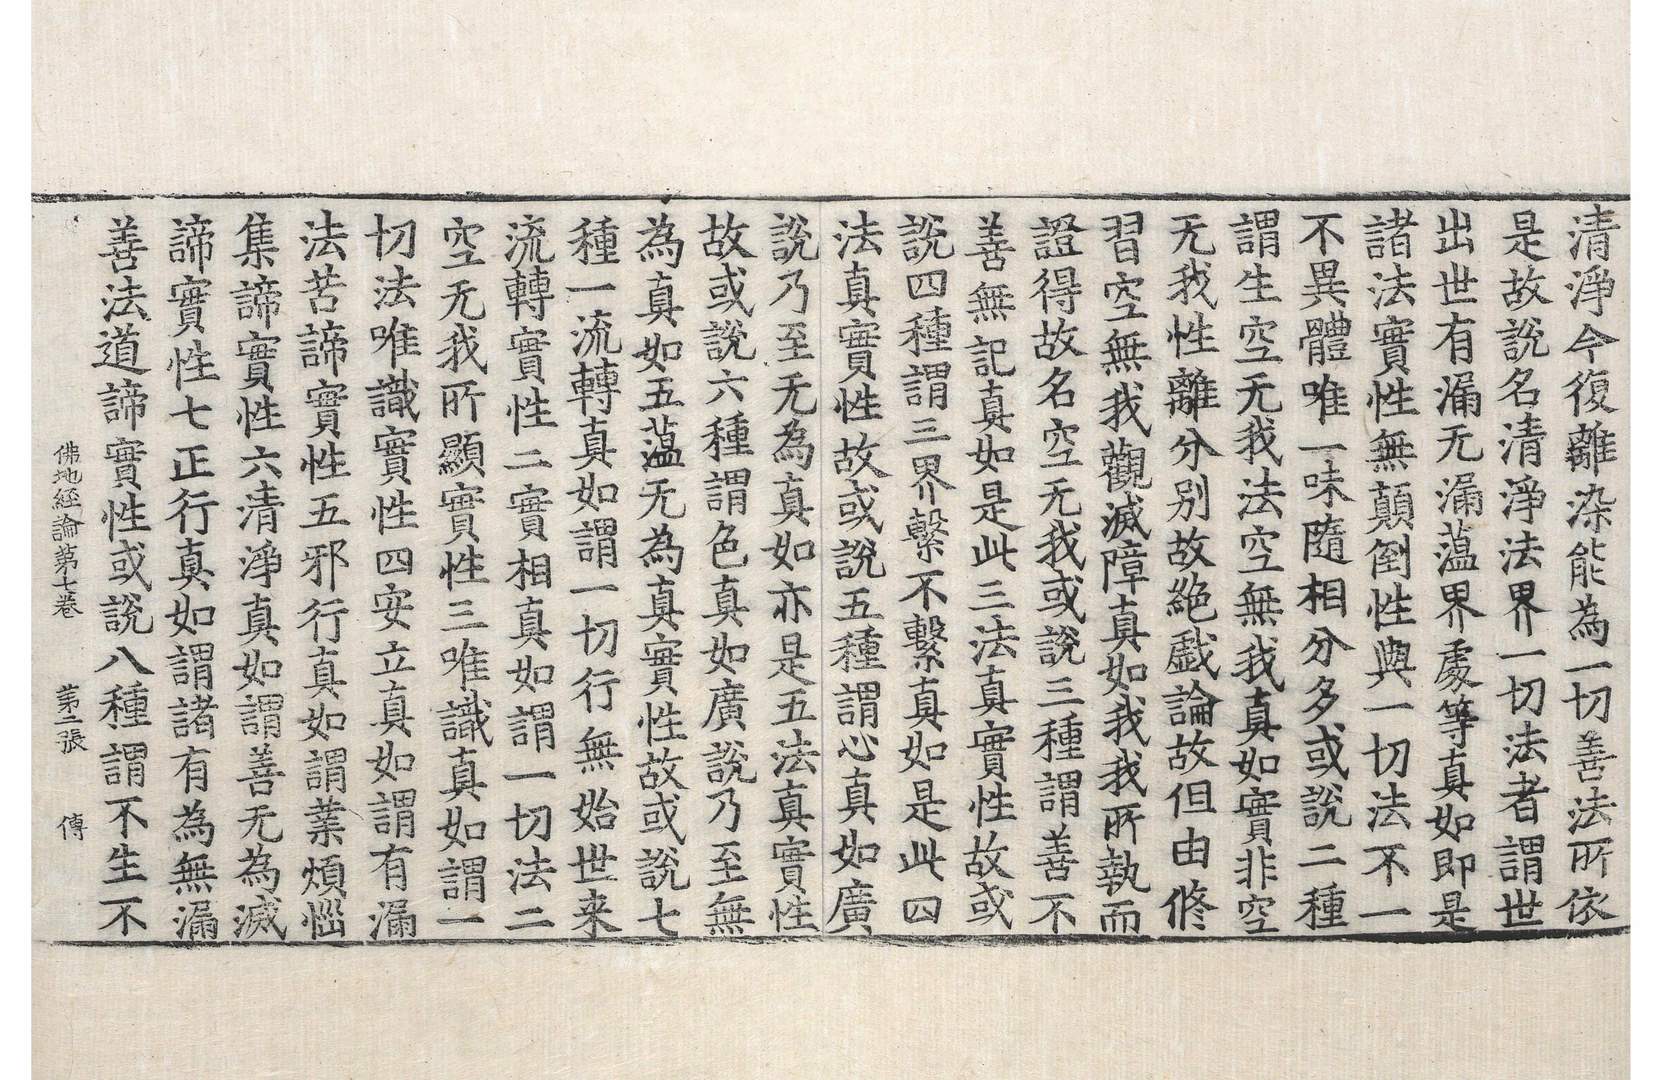 清淨今復離染能為一切善法所依
是故說名清淨法界一切法者謂世
出世有漏无漏薀界處等真如即是
諸法實性無顛倒性與一切法不一
不異體唯一味隨相分多或說二種
謂生空无我法空無我真如實非空
无我性離分别故絶戱論故但由修
習空無我觀滅障真如我我所執而
證得故名空无我或說三種謂善不
善無記真如是此三法真實性故或
說四種謂三界繫不繫真如是此四
法真實性故或說五種謂心真如廣
說乃至无為真如亦是五法真實性
故或說六種謂色真如廣說乃至無
為真如五薀无為真實性故或說七
種一流轉真如謂一切行無始世来
流轉實性二實相真如謂一切法二
空无我所顯實性三唯識真如謂一
切法唯識實性四安立真如謂有漏
法苦諦實性五邪行真如謂業煩惱
集諦實性六清淨真如謂善无為滅
諦實性七正行真如謂諸有為無漏
善法道諦實性或說八種謂不生不
佛地經論第七卷 第二張 傳